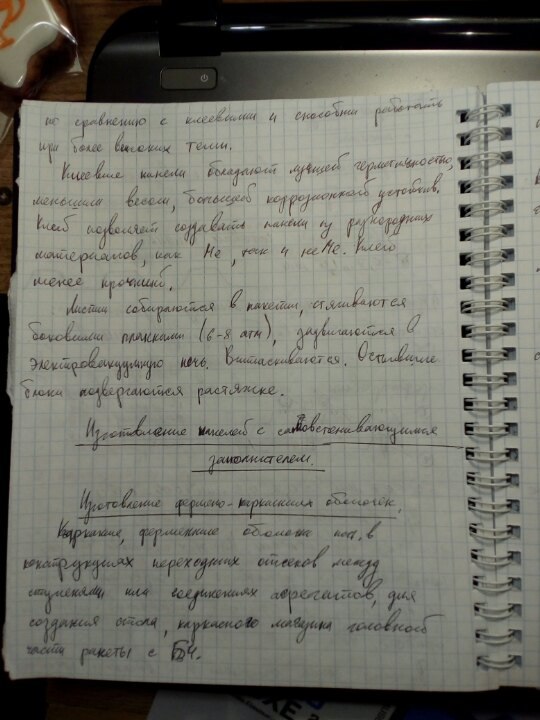 по сравнению с клеевыми и способны работать
при более высоких темп.
Клеевые панели обладают лучшей герметичностью,
меньшим весом, большей коррозионной устойчив.
Клей позволяет создавать панели из разнородных
материалов, как Ме, так и неМе. Клего
менее прочный.
Листы собираются в пакеты, стягиваются
боковыми планками (6-8 атм), задвигаются в
электровакуумную печь. Вытаскиваются. Остывшие
блоки подвергаются растяжке.
Изготовление панелей с самовспенивающимся
заполнителем.
Изготовление фермено-каркасных оболочек.
Каркасные, ферменные оболочки в
конструкциях переходных отсеков между
ступенями или соединениях агрегатов, для
создания каркасного головной
части ракеты с БЧ.